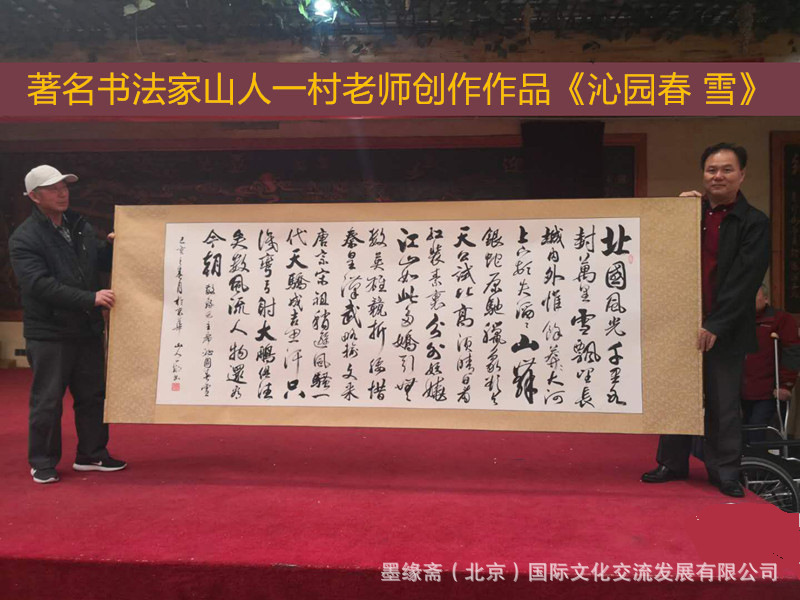 著名书法家山人一村老师创作作品《沁园春 雪》
北國風光千里冰
封萬里雪飄望長
城内外惟餘莽大河
上下頓失滔〻山舞
銀蛇原馳蠟象欲与
天公試比高須晴日看
紅裝素裹分外妖嬈
江山如此多嬌引無
數英雄競折腰惜
秦皇漢武略輸文采
唐宗宋祖稍遜風騷一
代天驕成吉思汗只
識彎弓射大鵬俱往
矣數風流人物還看
今朝 敬錄毛主席沁園春雪
山人一村
墨缘斋（北京）国际文化交流发展有限公司